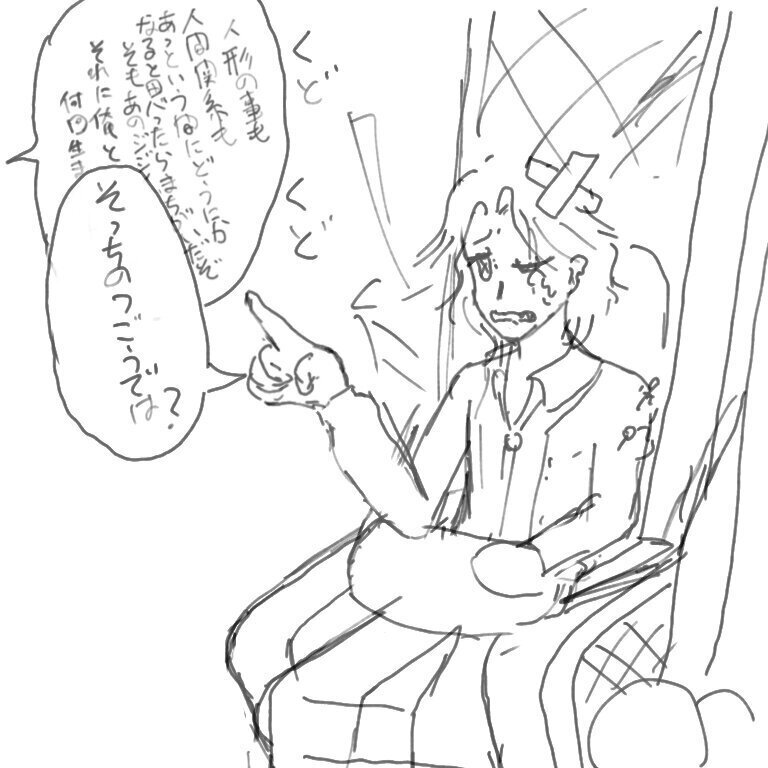 くど
くど
人形の事も
人間関係も
あっというまにどうにか
なると思ったらまちがいだぞ
そもあのジジ
それに俺と
何回生き
そっちのつごうでは?